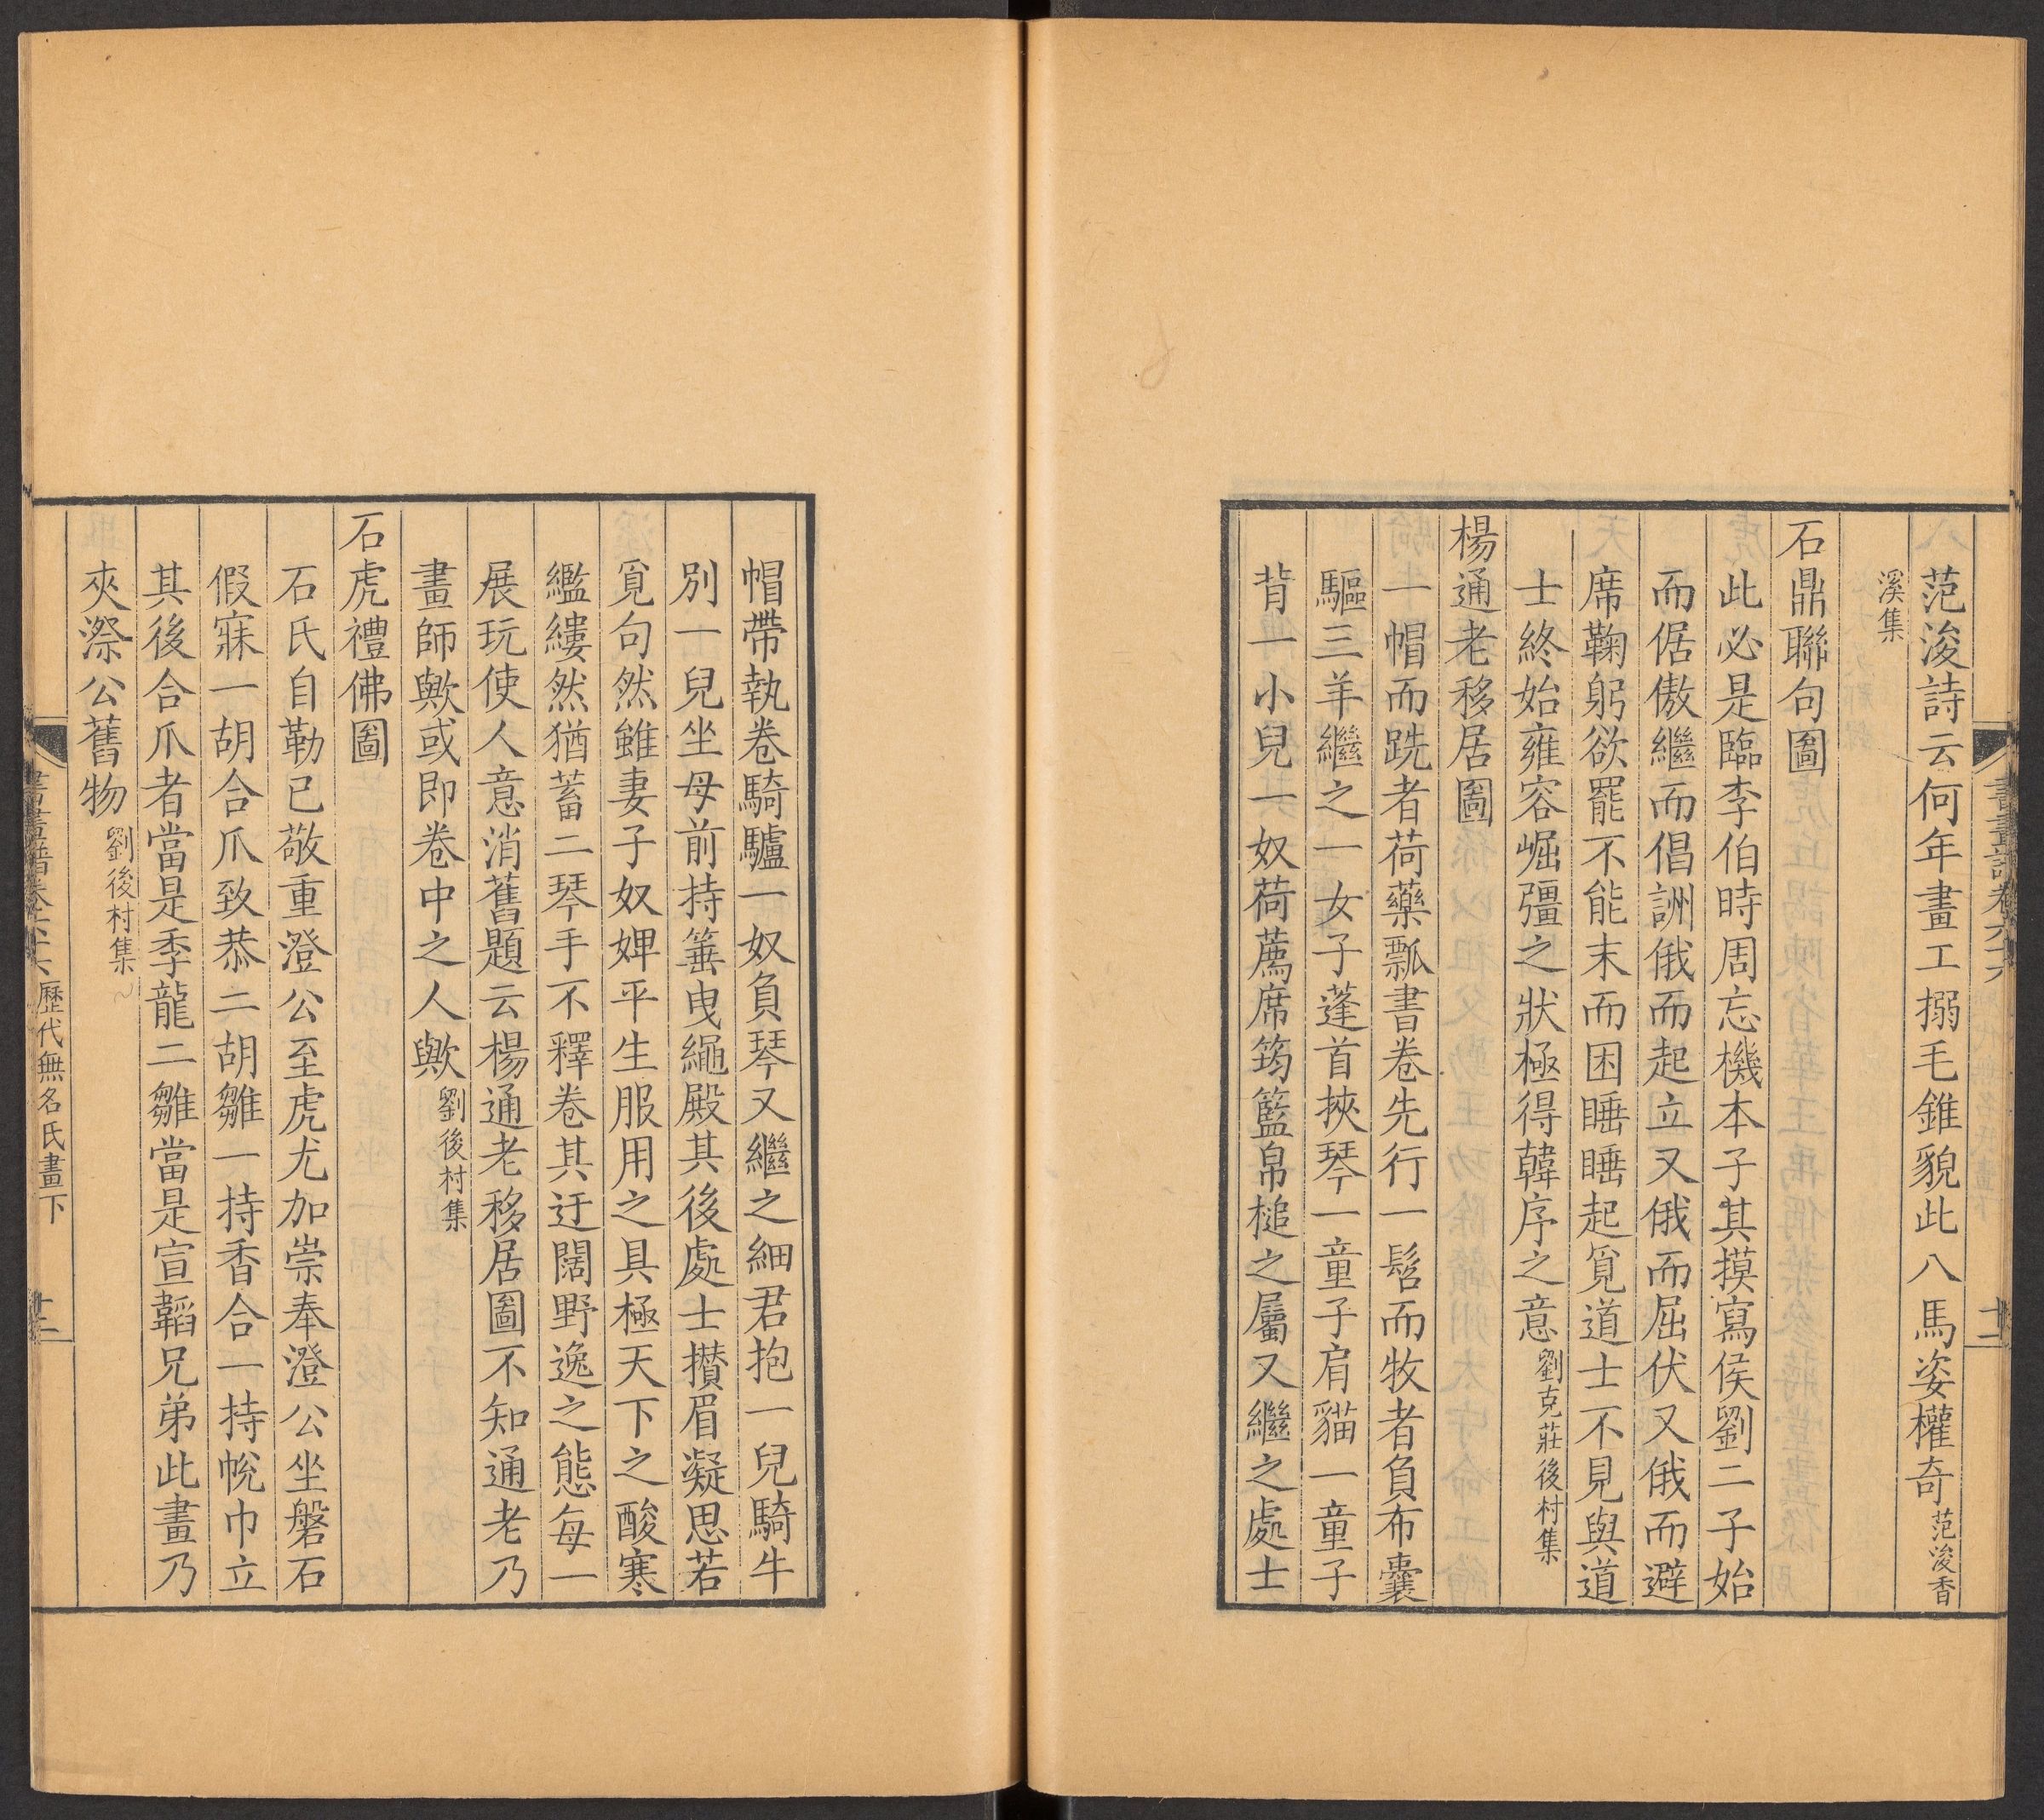 范浚詩云何年畫工搦毛錐貌此八馬姿權奇范浚香
溪集
石鼎聯句圖
此必是臨李伯時周忘機本子其摸寫侯劉二子始
而倨傲繼而倡詶俄而起立又俄而屈伏又俄而避
席鞠躬欲罷不能末而困睡睡起覓道士不見與道
士終始雍容崛彊之狀極得韓序之意劉克莊後村集
楊通老移居圖
一帽而跣者荷藥瓢書卷先行一髫而牧者負布囊
驅三羊繼之一女子蓬首挾琴一童子肩貓一童子
背一小兒一奴荷薦席筠籃帛槌之屬又繼之處士
帽帶執卷騎驢一奴負琴又繼之細君抱一兒騎牛
別一兒坐母前持箠曳繩殿其後處士攢眉凝思若
覓句然雖妻子奴婢平生服用之具極天下之酸寒
繿縷然猶蓄二琴手不釋卷其迂闊野逸之態每一
展玩使人意消舊題云楊通老移居圖不知通老乃
畫師歟或即卷中之人歟劉後村集
石虎禮佛圖
石氏自勒已敬重澄公至虎尤加崇奉澄公坐磐石
假寐一胡合爪致恭二胡雛一持香合一持帨巾立
其後合爪者當是季龍二雛當是宣韜兄弟此畫乃
夾漈公舊物劉後村集
歷代無名氏畫下
十二